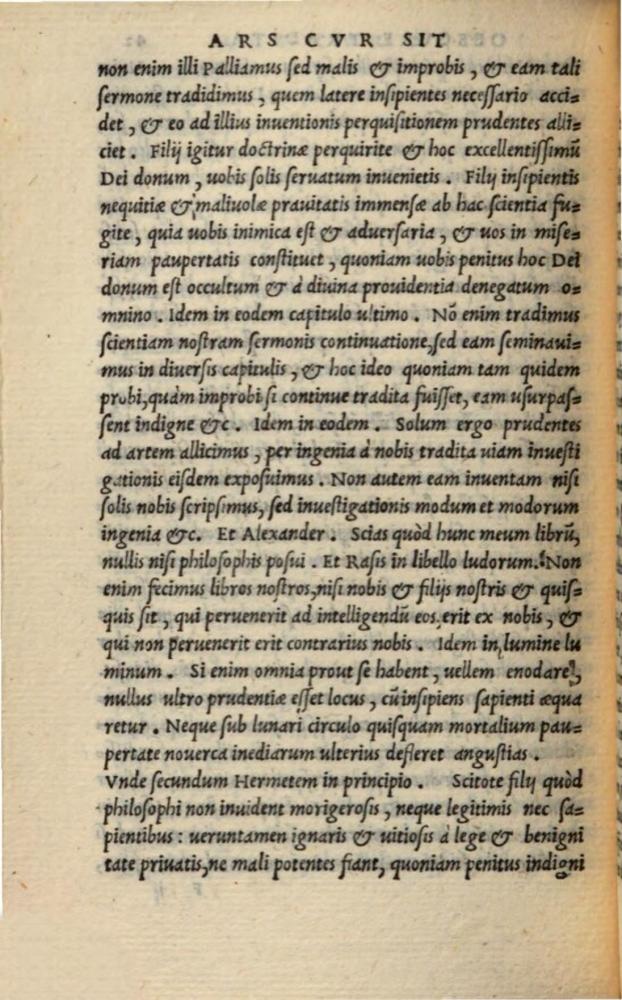 ARS CVR SIT
non enim illi Palliamus ſed malis & improbis, & eam tali
ſermone tradidimus, quem latere inſipientes neceſſario acci=
det, & eo ad illius inuentionis perquiſitionem prudentes alli=
ciet. Filij igitur doctrinæ perquirite & hoc excellentiſſimũ
Dei donum, uobis ſolis ſeruatum inuenietis. Filij inſipientis
nequitiæ & maliuolæ prauitatis immenſæ ab hac ſcientia fu=
gite, quia uobis inimica eſt & aduerſaria, & uos in miſe=
riam paupertatis conſtituet, quoniam uobis penitus hoc Dei
donum eſt occultum & à diuina prouidentia denegatum o=
mnino. Idem in eodem capitulo ultimo. Nõ enim tradimus
ſcientiam noſtram ſermonis continuatione, ſed eam ſeminaui=
mus in diuerſis capitulis, & hoc ideo quoniam tam quidem
probi, quàm improbi ſi continue tradita fuiſſet, eam uſurpaſ=
ſent indigne &c. Idem in eodem. Solum ergo prudentes
ad artem allicimus, per ingenia à nobis tradita uiam inueſti
gationis eiſdem expoſuimus. Non autem eam inuentam niſi
ſolis nobis ſcripſimus, ſed inueſtigationis modum et modorum
ingenia &c. Et Alexander. Scias quòd hunc meum librũ,
nullis niſi philoſophis poſui. Et Raſis in libello ludorum. Non
enim fecimus libros noſtros, niſi nobis & filijs noſtris & quiſ=
quis ſit, qui peruenerit ad intelligendũ eos erit ex nobis, &
qui non peruenerit erit contrarius nobis. Idem in lumine lu
minum. Si enim omnia prout ſe habent, uellem enodare,
nullus ultro prudentiæ eſſet locus, cũ inſipiens ſapienti æqua
retur. Neque ſub lunari circulo quiſquam mortalium pau=
pertate nouerca inediarum ulterius defleret anguſtias.
Vnde ſecundum Hermetem in principio. Scitote filij quòd
philoſophi non inuident morigeroſis, neque legitimis nec ſa=
pientibus: ueruntamen ignaris & uitioſis à lege & benigni
tate priuatis, ne mali potentes fiant, quoniam penitus indigni